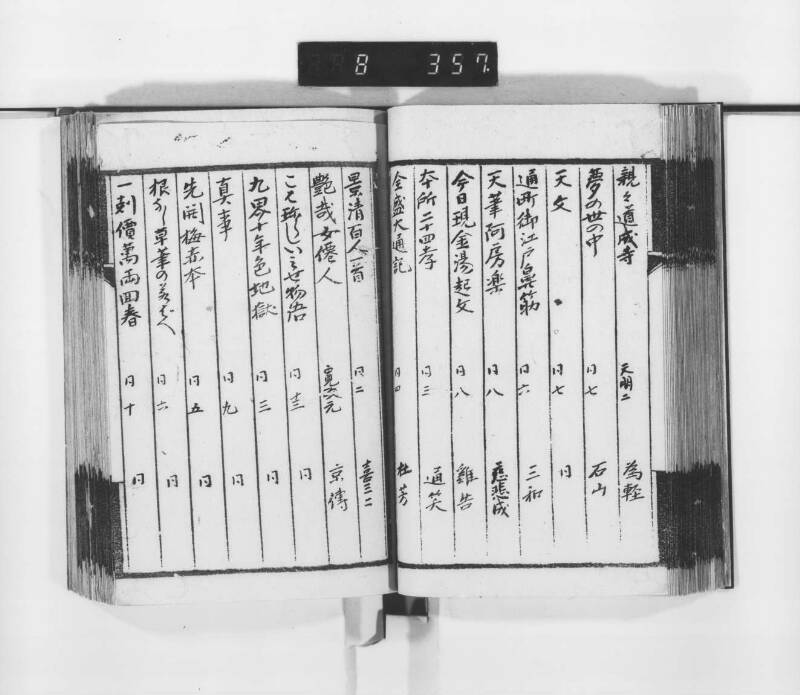 8 357.
親々道成寺 天明二 為軽
夢の世の中 同七 石山
天文 同七 同
通町御江戸鼻筋 同六 三和
天筆阿房楽 同八 慈悲成
今日現金湯起文 同八 雞告
本所二十四孝 同三 通笑
全盛大通記 同四 杜芳
景清百人一首 同二 喜三二
艶哉女僊人 寛政元 京傳
こはめづらしいみせ物語 同十三 同
九界十年色地獄 同三 同
真事 同九 同
先開梅赤本 同五 同
根なし草筆のわかばへ 同六 同
一刻價萬両回春 同十 同